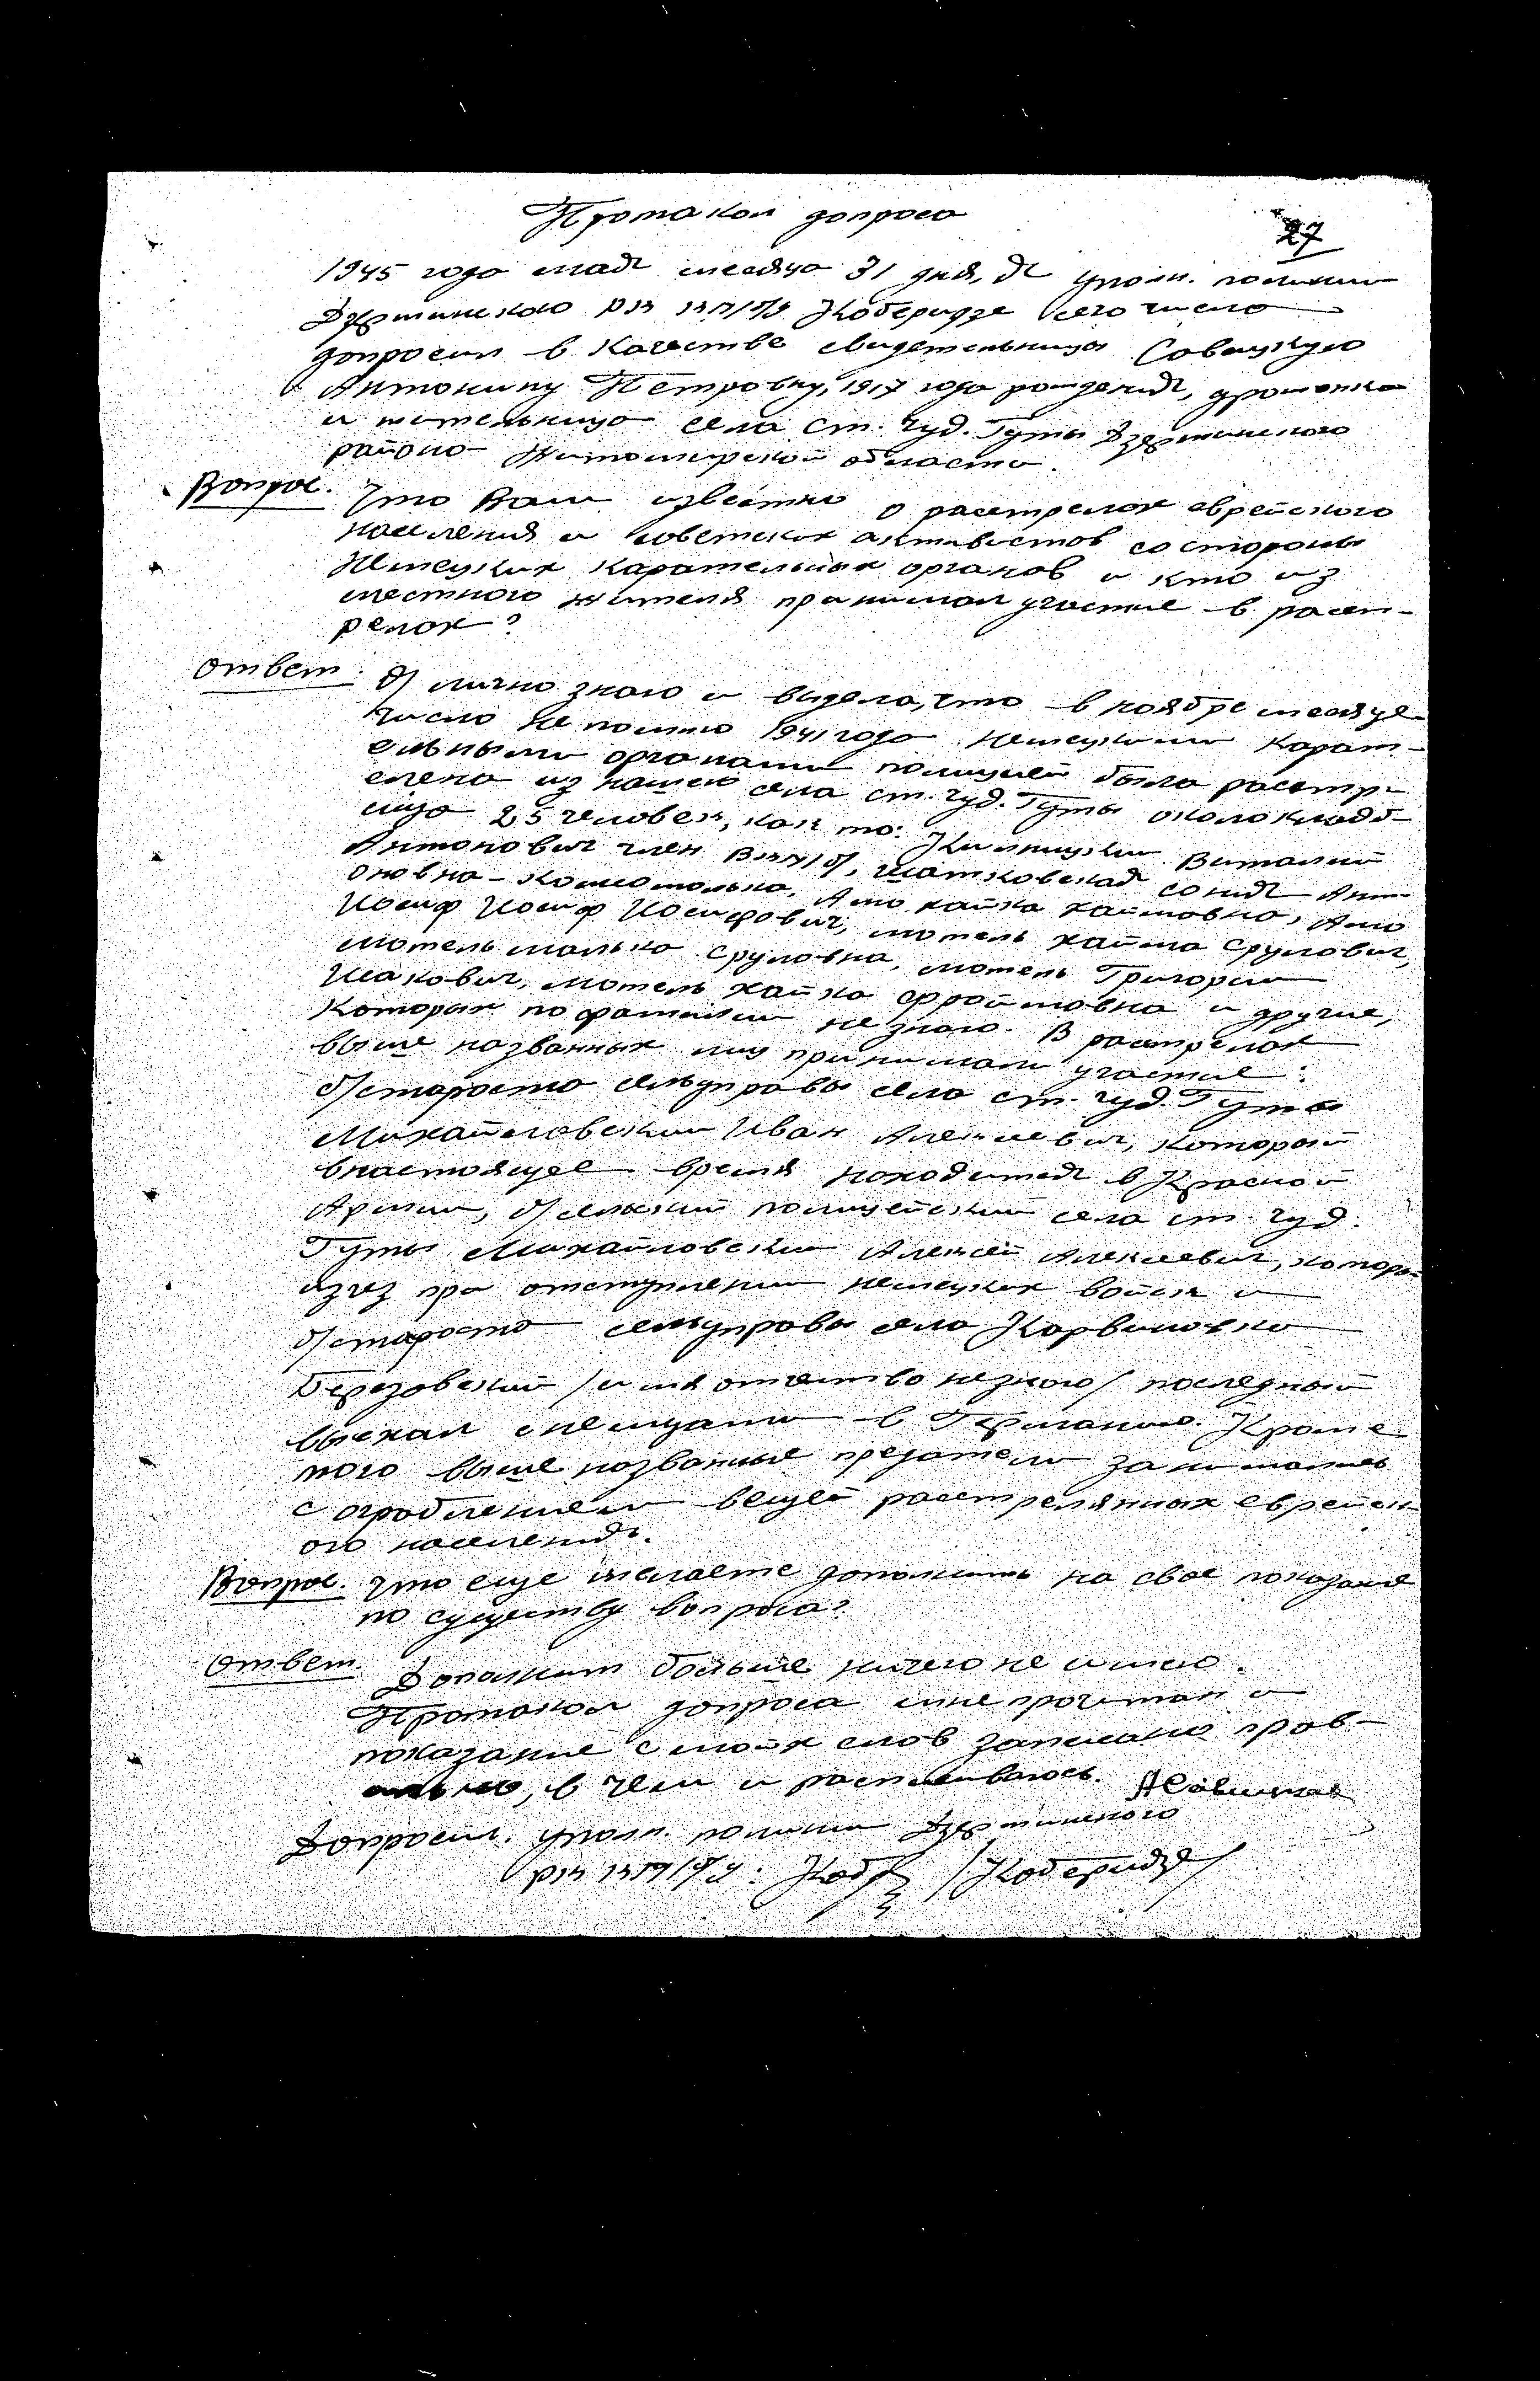 Протокол допроса
27
1945 года мая месяца 31 дня, я уполн. полиции
Дзержинского РК КП/б/У Коберидзе сего число
допросил в качестве свидетельницы Савицкую
Антонину Петровну, 1917 года рождения, урожен­ка
и жительница села Ст. Чуд. Гуты Дзержинского
района Житомирской области.
Вопрос. Что Вам известно о расстрелах еврейского
населения и советских активистов со стороны
Немецких карательных органов и кто из
местного жителя принимал участие в расст-
релах?
Ответ. Я лично знаю и видела, что в ноябре месяце
число не помню 1941 года немецкими карат-
ельными органами полицией было расстр-
елено из нашего села ст. Чуд. Гуты около кладб-
ища 25 человек, как то: Виталий
Антонович член ВКП/б/, Шатковская Сония Ант-
оновна - комсомолка, хаймовна,
Иосиф Иосиф Иосифович, мотель хайма Срулович,
мотель малка Сруловна, мотель Григорий
Исакович, мотель хайка фроймовна и другие,
которых по фамилии не знаю. В расстрелах
выше названных лиц принимали участие:
б/староста сельуправы села ст. Чуд. Гуты
Михайловский Иван Алексеевич, который
внастоящее время находится в Красной
Армии, б/ полицейский села ст. Чуд.
Гуты Михайловский Алексей Алексеевич, которой
изчез при отступлении немецких войск и
б/староста сельуправы села Карвиновка
Березовский /имя отчество незнаю/ последный
выехал с немцами в Германию. Кроме
того выше названные предатели занимались
с ограблением вещей расстрелянных еврейск-
ого населения.
Вопрос. Что еще желаете дополнить на свое показание
по существу вопроса?
Ответ. Дополнит больше ничего не имею.
Протокол допроса мне прочитан и
показание с моих слов записано прав-
ильно, в чем и расписываюсь. АСавицкая
Допросил. Уполн. полиции Дзержинского
РК КП/б/У: Кобр /Коберидзе/